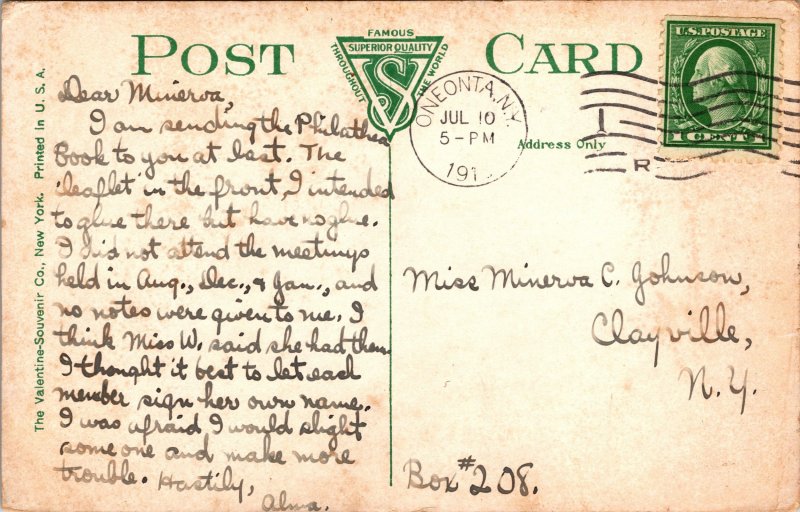 POST CARD
FAMOUS
SUPERIOR QUALITY
THROUGHOUT THE WORLD
VS
U.S. POSTAGE
1 CENT 1
ONEONTA, N.Y.
JUL 10
5-PM
191
1
R
Address Only
The Valentine-Souvenir Co., New York. Printed in U. S. A.
Dear Minerva,
I am sending the Philathea
Book to you at last. The
'leaflet' in the front, I intended
to glue there but have no glue.
I did not attend the meetings
held in Aug., Dec., & Jan., and
no notes were given to me. I
think Miss W. said she had them.
I thought it best to let each
member sign her own name.
I was afraid I would slight
some one and make more
trouble. Hastily,
Alma.
Miss Minerva C. Johnson,
Clayville,
N.Y.
Box #208.